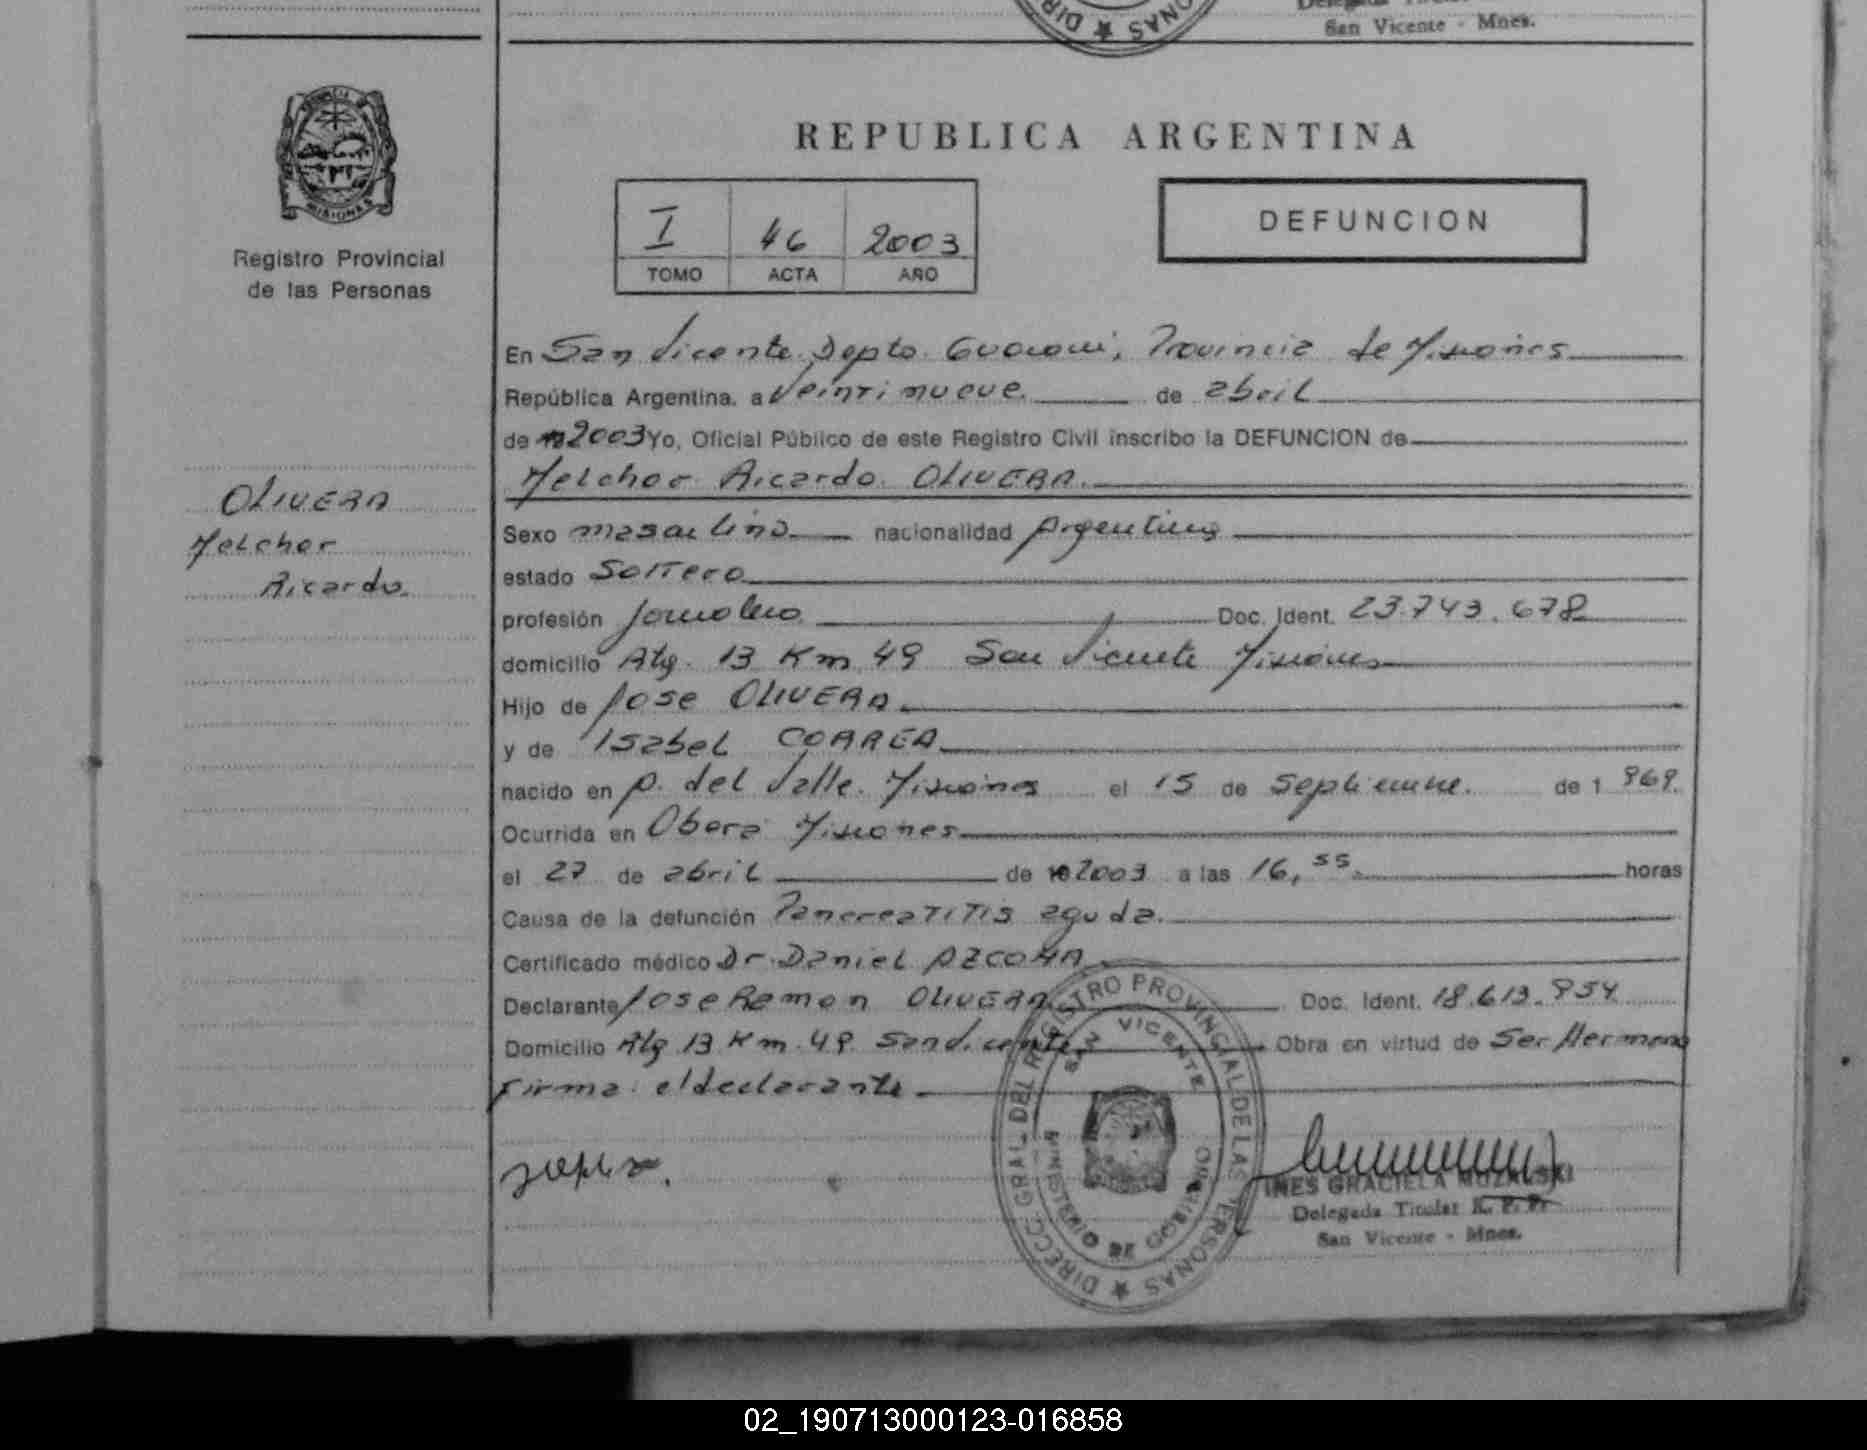 San Vicente - Mnes.
REPUBLICA ARGENTINA
PROVINCIA DE
MISIONES
Registro Provincial
de las Personas
I 46 2003
TOMO ACTA AÑO
DEFUNCION
En San Vicente Depto. Guarani, Provincia de Misiones
República Argentina, a Veintinueve de abril
de 2003 Yo, Oficial Público de este Registro Civil inscribo la DEFUNCION de
Melchor Ricardo OLIVERA
OLIVERA
Melchor
Ricardo.
Sexo masculino nacionalidad Argentino
estado Soltero
profesión Jornalero Doc. Ident. 23.743.678
domicilio Alg. 13 Km 49 San Vicente Misiones
Hijo de Jose OLIVERA
y de Isabel CORREA
nacido en p. del Valle. Misiones el 15 de Septiembre. de 1 969.
Ocurrida en Obera Misiones
el 27 de abril de 2003 a las 16,55 horas
Causa de la defunción Pancreatitis aguda.
Certificado médico Dr. Daniel AZCONA
Declarante Jose Ramon OLIVERA Doc. Ident. 18.613.954
Domicilio Alg 13 Km. 49 San Vicente Obra en virtud de Ser Hermano
Firma: el declarante
DIRECC. GRAL. DEL REGISTRO PROVINCIAL DE LAS PERSONAS
SAN VICENTE
MINISTERIO DE GOBIERNO
INES GRACIELA MUZALSKI
Delegada Titular R. P. P.
San Vicente - Mnes.
02_190713000123-016858